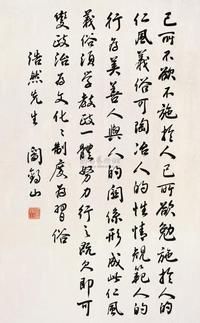 己所不欲不施於人己所欲勉施於人的
仁風義俗可陶冶人的性情規範人的
行為美善人與人的關係形成此仁風
義俗須學教政一體努力行之既久即可
變政治為文化變制度為習俗
浩然先生
閻錫山